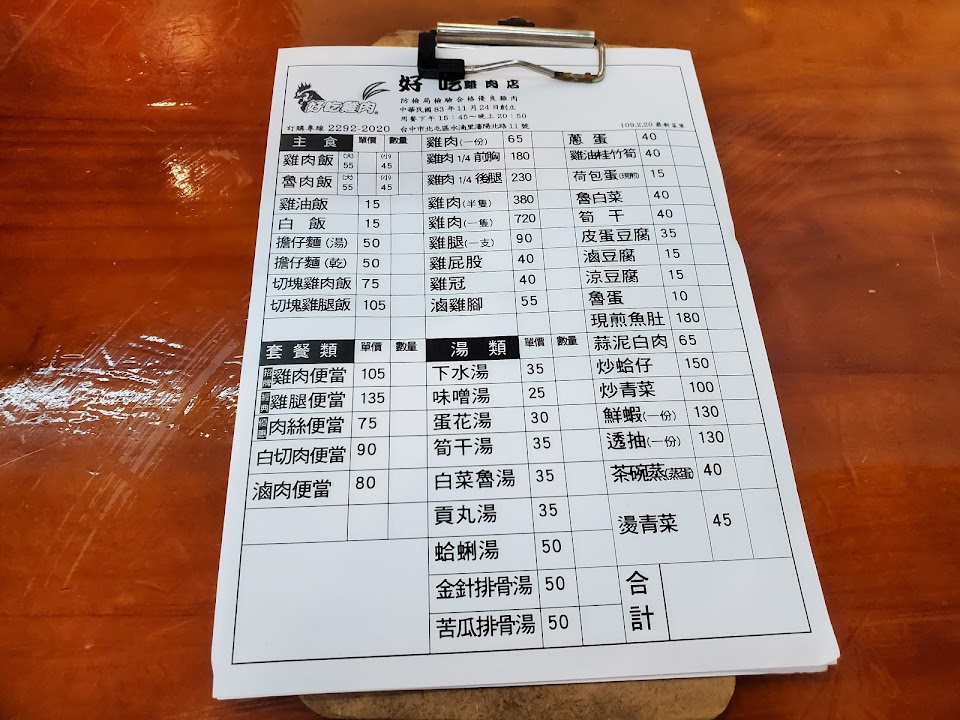 好吃雞肉店
好吃雞肉
防檢局檢驗合格優良雞肉
中華民國83年11月24日創立
用餐下午15:45~晚上20:50
訂購專線 2292-2020 台中市北屯區水湳里瀋陽北路11號 109.2.20最新菜單
主食 單價 數量
雞肉飯 (大)55 (小)45
魯肉飯 (大)55 (小)45
雞油飯 15
白飯 15
擔仔麵(湯) 50
擔仔麵(乾) 50
切塊雞肉飯 75
切塊雞腿飯 105
套餐類 單價 數量
雞肉便當 105
雞腿便當 135
肉絲便當 75
白切肉便當 90
滷肉便當 80
雞肉(一份) 65
雞肉1/4前胸 180
雞肉1/4後腿 230
雞肉(半隻) 380
雞肉(一隻) 720
雞腿(一支) 90
雞屁股 40
雞冠 40
滷雞腳 55
湯類 單價 數量
下水湯 35
味噌湯 25
蛋花湯 30
筍干湯 35
白菜魯湯 35
貢丸湯 35
蛤蜊湯 50
金針排骨湯 50
苦瓜排骨湯 50
蔥蛋 40
雞油桂竹筍 40
荷包蛋(現煎) 15
魯白菜 40
筍干 40
皮蛋豆腐 35
滷豆腐 15
涼豆腐 15
魯蛋 10
現煎魚肚 180
蒜泥白肉 65
炒蛤仔 150
炒青菜 100
鮮蝦(一份) 130
透抽(一份) 130
茶碗蒸(蒸蛋) 40
燙青菜 45
合計